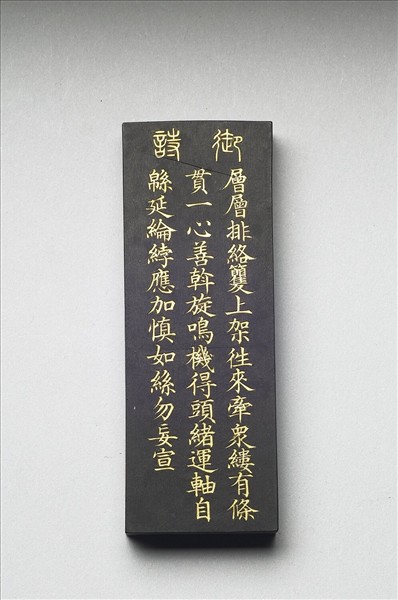 御詩
層層排絡籰上架徃來牽衆縷有條
貫一心善斡旋鳴機得頭緒運軸自
緜延綸綍應加慎如絲勿妄宣